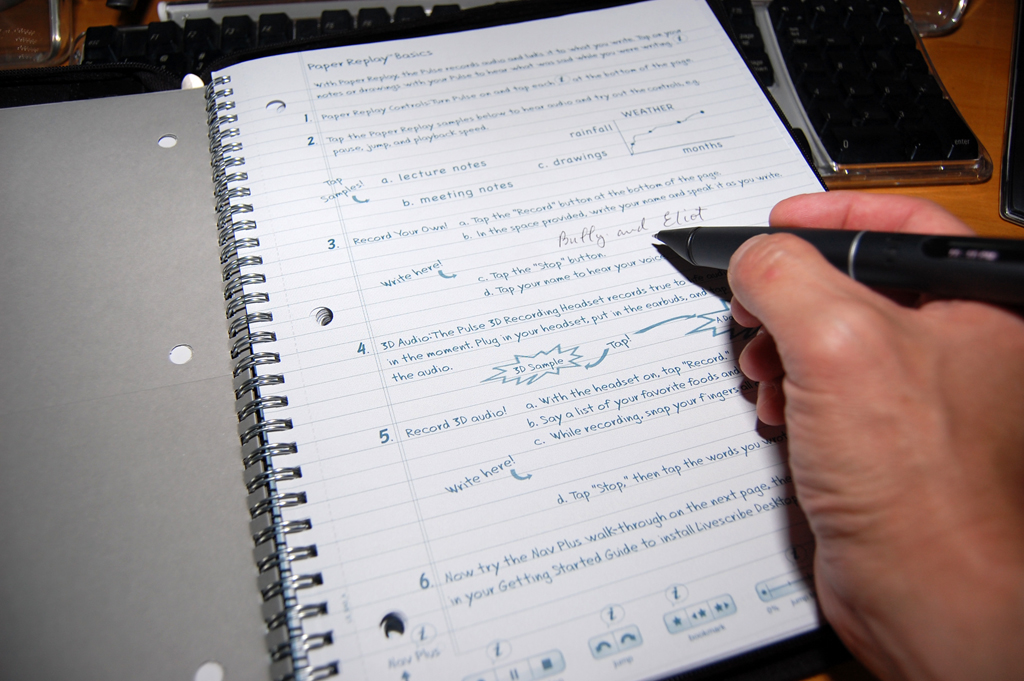 Paper Replay™ Basics
With Paper Replay, the Pulse records audio and links it to what you write. Tap on your
notes or drawings with your Pulse to hear what was said while you were writing. i
1. Paper Replay Controls: Turn Pulse on and tap each i, at the bottom of the page.
2. Tap the Paper Replay samples below to hear audio and try out the controls, e.g.
pause, jump, and playback speed.
WEATHER
rainfall
months
Tap
samples!
a. lecture notes
c. drawings
b. meeting notes
3. Record Your Own!
a. Tap the "Record" button at the bottom of the page.
b. In the space provided, write your name and speak it as you write.
Buffy and Eliot
Write here!
c. Tap the "Stop" button.
d. Tap your name to hear your
4. 3D Audio: The Pulse 3D Recording Headset records true to
in the moment. Plug in your headset, put in the earbuds, and
the audio.
3D Sample
Tap!
5. Record 3D audio!
a. With the headset on, tap "Record."
b. Say a list of your favorite foods and
c. While recording, snap your fingers
Write here!
d. Tap "Stop," then tap the words you
6. Now try the Nav Plus walk-through on the next page,
in your Getting Started Guide to install Livescribe Desktop
i
i
i
i
Nav Plus
jump
bookmark
0%
jump
0
enter